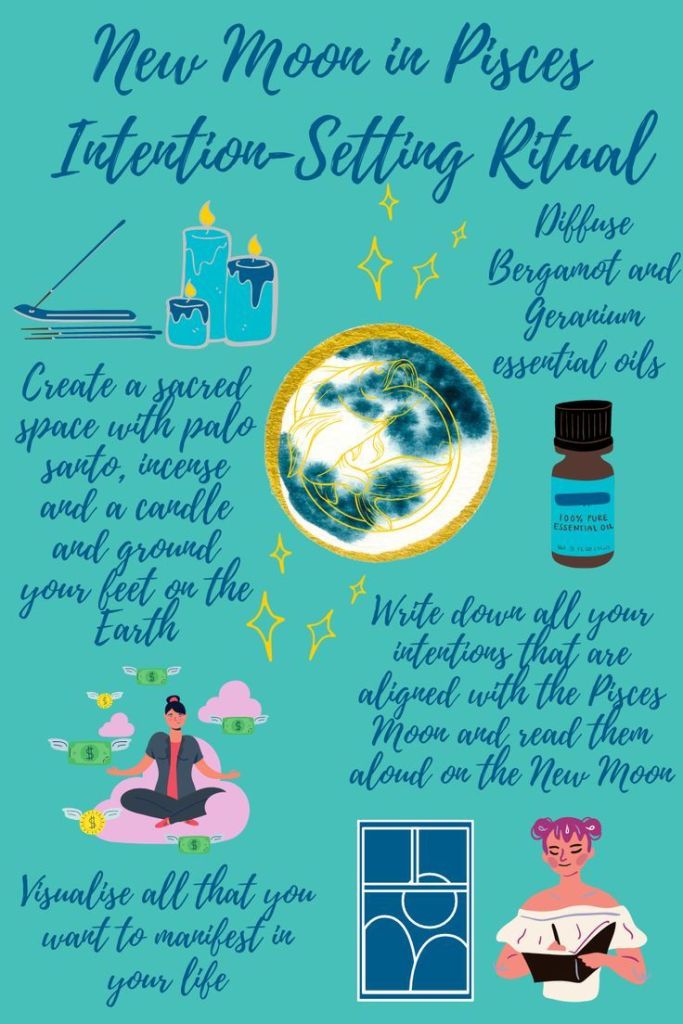 New Moon in Pisces
Intention-Setting Ritual
Diffuse
Bergamot and
Geranium
essential oils
Create a sacred
space with palo
santo, incense
and a candle
and ground
your feet on the
Earth
100% PURE
ESSENTIAL OIL
Write down all your
intentions that are
aligned with the Pisces
Moon and read them
aloud on the New Moon
$
$
$
$
$
$
Visualise all that you
want to manifest in
your life